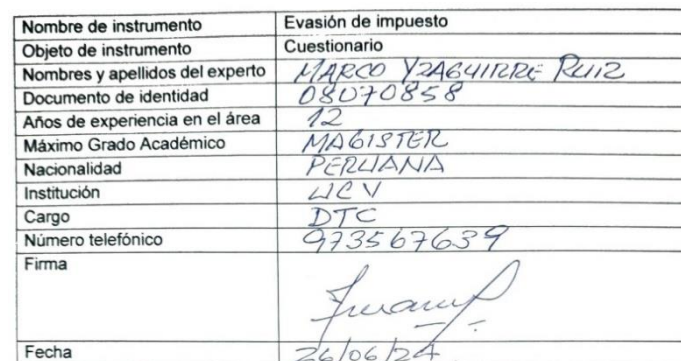 Nombre de instrumento Evasión de impuesto
Objeto de instrumento Cuestionario
Nombres y apellidos del experto MARCO YZAGUIRRE RUIZ
Documento de identidad 08070858
Años de experiencia en el área 12
Máximo Grado Académico MAGISTER
Nacionalidad PERUANA
Institución UCV
Cargo DTC
Número telefónico 973567639
Firma
Fecha 26/06/24